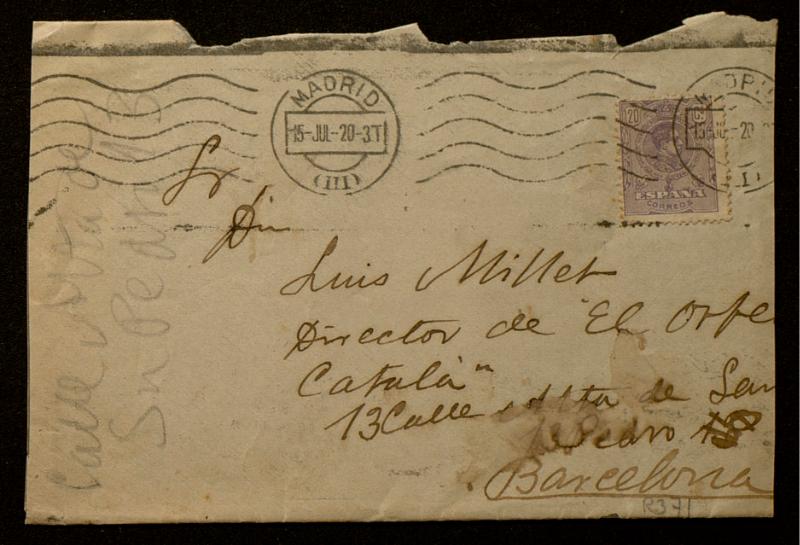 MADRID
15-JUL-20-3T
(III)
MADRID
15-JUL-20
20
ESPAÑA
CORREOS
Sr
Dn
Luis Millet
Director de "El Orfe
Català"
13 Calle Alta de San
Pedro
Barcelona
R371
Calle Alta de
Sn Pedro 13